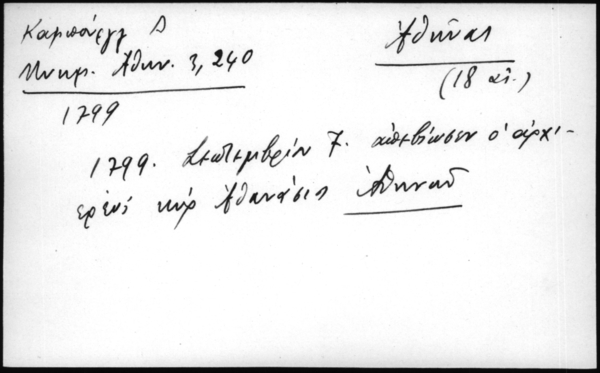 Καμπούργλ Δ
Μνημ. Αθην. 3, 240
Ἀθηνᾶς
(18 αἰ.)
1799
1799. Σεπτεμβρίου 7. ἀπεβίωσεν ὁ ἀρχι-
ερεὺς κύρ Ἀθανάσιος Ἀθηνῶν